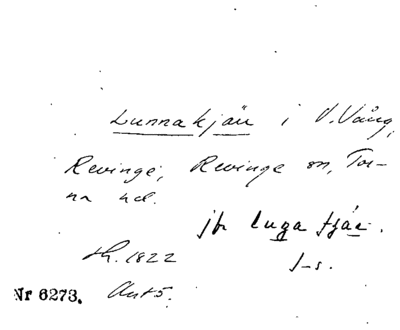 Lunnakjäu i V. Vång,
Revinge, Revinge sn, Tor-
na hd.
jfr luga tjác.
sk. 1822 J-s.
Nr 6273. Ant 5.